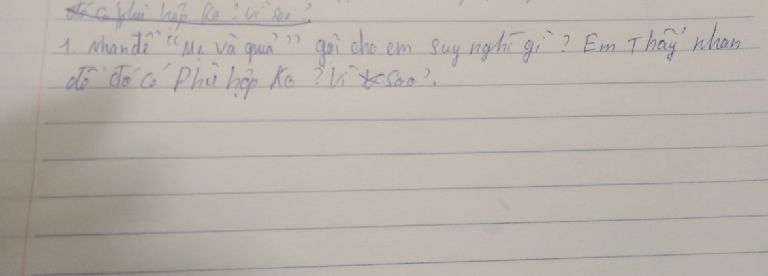 có phù hợp ko? Vì sao?
1. Nhan đề "Mẹ và quả" gợi cho em suy nghĩ gì? Em Thấy nhan
đề đó có Phù hợp ko? Vì sao?.